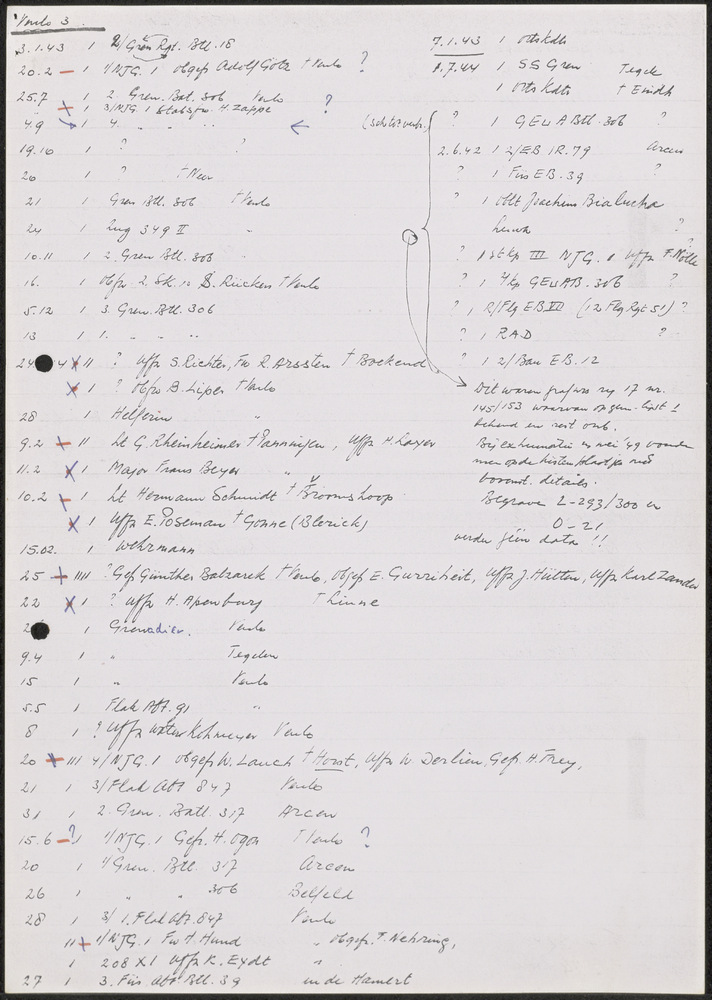 Venlo 3
3.1.43 1 2/Gren Rgt. Btl. 18
20.2 – 1 4/NJG. 1 obgefr Adolf Götz † Venlo ?
25.7 1 2. Gren. Bat. 306 Venlo
+ 1 3/NJG 1 Stabsfw. H. Zappe ?
4.9 1 4. " " " ←
19.10 1 ? ?
20 1 ? † Neer
21 1 Gren Btl. 306 † Venlo
24 1 Zug 349 II "
10.11 1 2. Gren Btl. 306 "
16. 1 B. Rückers † Venlo
5.12 1 3. Gren. Btl. 306
13 1 1. " " "
24 x 11 ? Uffz S. Richter, Fw R. Arssten † Boekend
x 1 ? Obfw B. Lipes † Venlo
28 1 Helferin "
9.2 + 11 Lt G. Rheinheimer † Panningen, Uffz H. Laxer
11.2 x 1 Major Frans Beyer "
10.2 + 1 Lt Hermann Schmidt †
x 1 Uffz E. Poseman † (Blerick)
15.02. 1 Wehrmann
25 + 1111 ? Gef Günther Balzarek † Venlo, Obgef E. Gurriheit, Uffz J. Hütten, Uffz Karl Zander
22 x 1 ? Uffz H. Apenburg † Linne
1 Grenadier. Venlo
9.4 1 " Tegelen
15 1 " Venlo
5.5 1 Flak Abt. 91 "
8 1 ? Uffz Kohmeyer Venlo
20 + 111 4/NJG. 1 obgefr W. Lauch † Horst, Uffz W Derlien, Gefr. H. Frey,
21 1 3/Flak Abt 847 Venlo
31 1 2. Gren. Batl. 317 Arcen
15.6 – ? 1 4/NJG. 1 Gefr. H. Ogon † Venlo ?
20 1 4 Gren. Btl. 317 Arcen
26 1 " " 306 Belfeld
28 1 3/ 1. Flak Abt. 847 Venlo
11 + 1/NJG. 1 Fw H. Hund " Obgefr. T. Nehring,
1 208 X1 Uffz K. Eydt "
27 1 3. Füs. Abt. Btl. 39 in de Hamert
7.1.43 1 Ortskdt
8.7.44 1 SS Gren Tegele
1 Ortskdt † Eindh
? 1 GEuABtl. 306 ?
2.6.42 1 2/EB IR. 79 Arcen
? 1 Füs EB. 39 ?
? 1 Oblt Joachim Bialucha
?
? 1 StKp III NJG. 1 Uffz F. Nölle ?
? 1 4 Kp GEuAB. 306 ?
? 1 R/Flg EB VII (12 Flg Rgt 51) ?
? 1 RAD ?
? 1 2/Bau EB. 12
Dit waren grafnrs rij 17 nr.
145/153 waarvan
bekend en rest onb.
Bij exhumatie in mei '49 vonden
men op de kisten plaatjes met
bovenst. details.
Begrave L-293/300 en
O-21
verder geen data !!